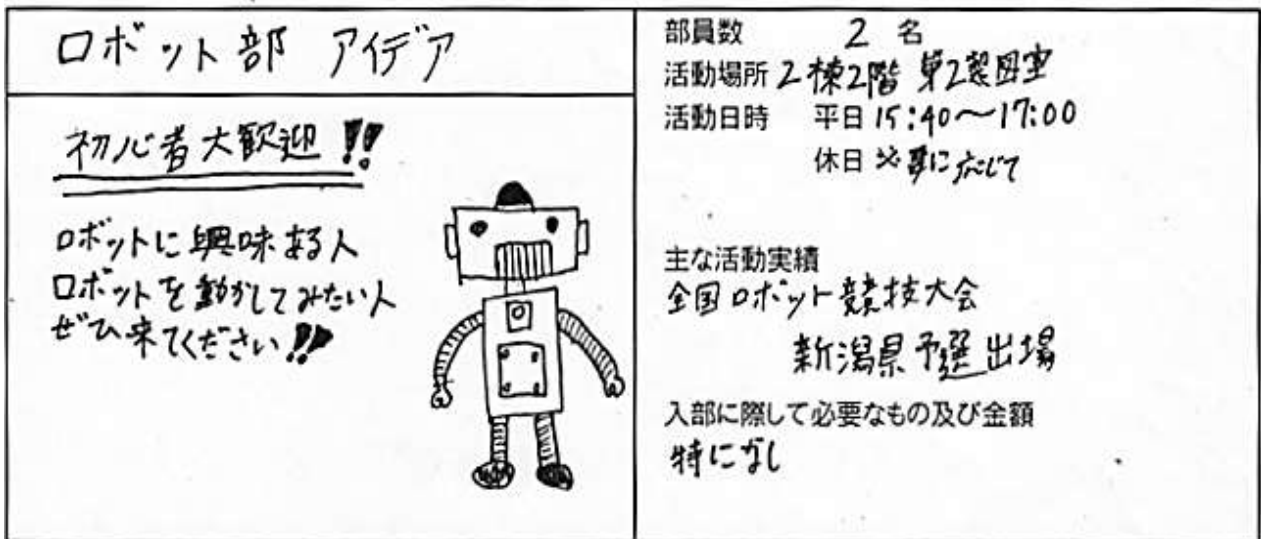 ロボット部 アイデア
初心者大歓迎!!
ロボットに興味ある人
ロボットを動かしてみたい人
ぜひ来てください!!
部員数 2 名
活動場所 2棟2階 第2製図室
活動日時 平日 15:40~17:00
休日 必要に応じて
主な活動実績
全国ロボット競技大会
新潟県予選出場
入部に際して必要なもの及び金額
特になし